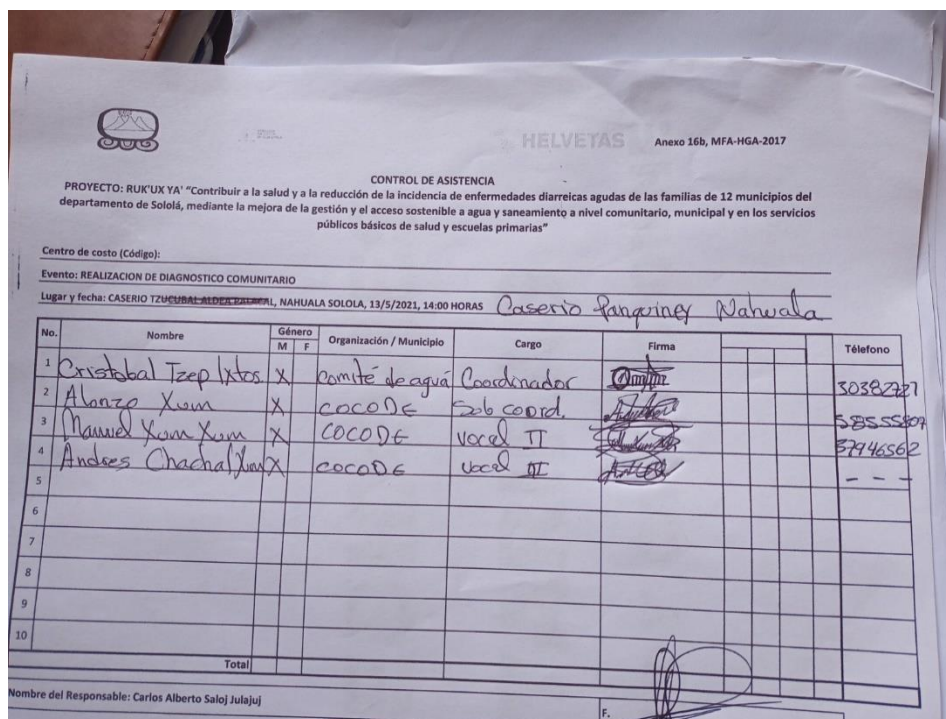 HELVETAS
Anexo 16b, MFA-HGA-2017
CONTROL DE ASISTENCIA
PROYECTO: RUK'UX YA' "Contribuir a la salud y a la reducción de la incidencia de enfermedades diarreicas agudas de las familias de 12 municipios del
departamento de Sololá, mediante la mejora de la gestión y el acceso sostenible a agua y saneamiento a nivel comunitario, municipal y en los servicios
públicos básicos de salud y escuelas primarias"
Centro de costo (Código):
Evento: REALIZACION DE DIAGNOSTICO COMUNITARIO
Lugar y fecha: CASERIO TZUCUBAL ALDEA, NAHUALA SOLOLA, 13/5/2021, 14:00 HORAS Caserio Nahuala
No. Nombre Género Organización / Municipio Cargo Firma Télefono
M F
1 Cristobal Tzep Ixtos X comité de aguá Coordinador 30382727
2 Alonzo Xum X COCODE Sob coord. 58555807
3 Manuel Xum Xum X COCODE vocal II 37946562
4 Andres Chachal Xum X COCODE vocal III - - -
5
6
7
8
9
10
Total
Nombre del Responsable: Carlos Alberto Saloj Julajuj
F.